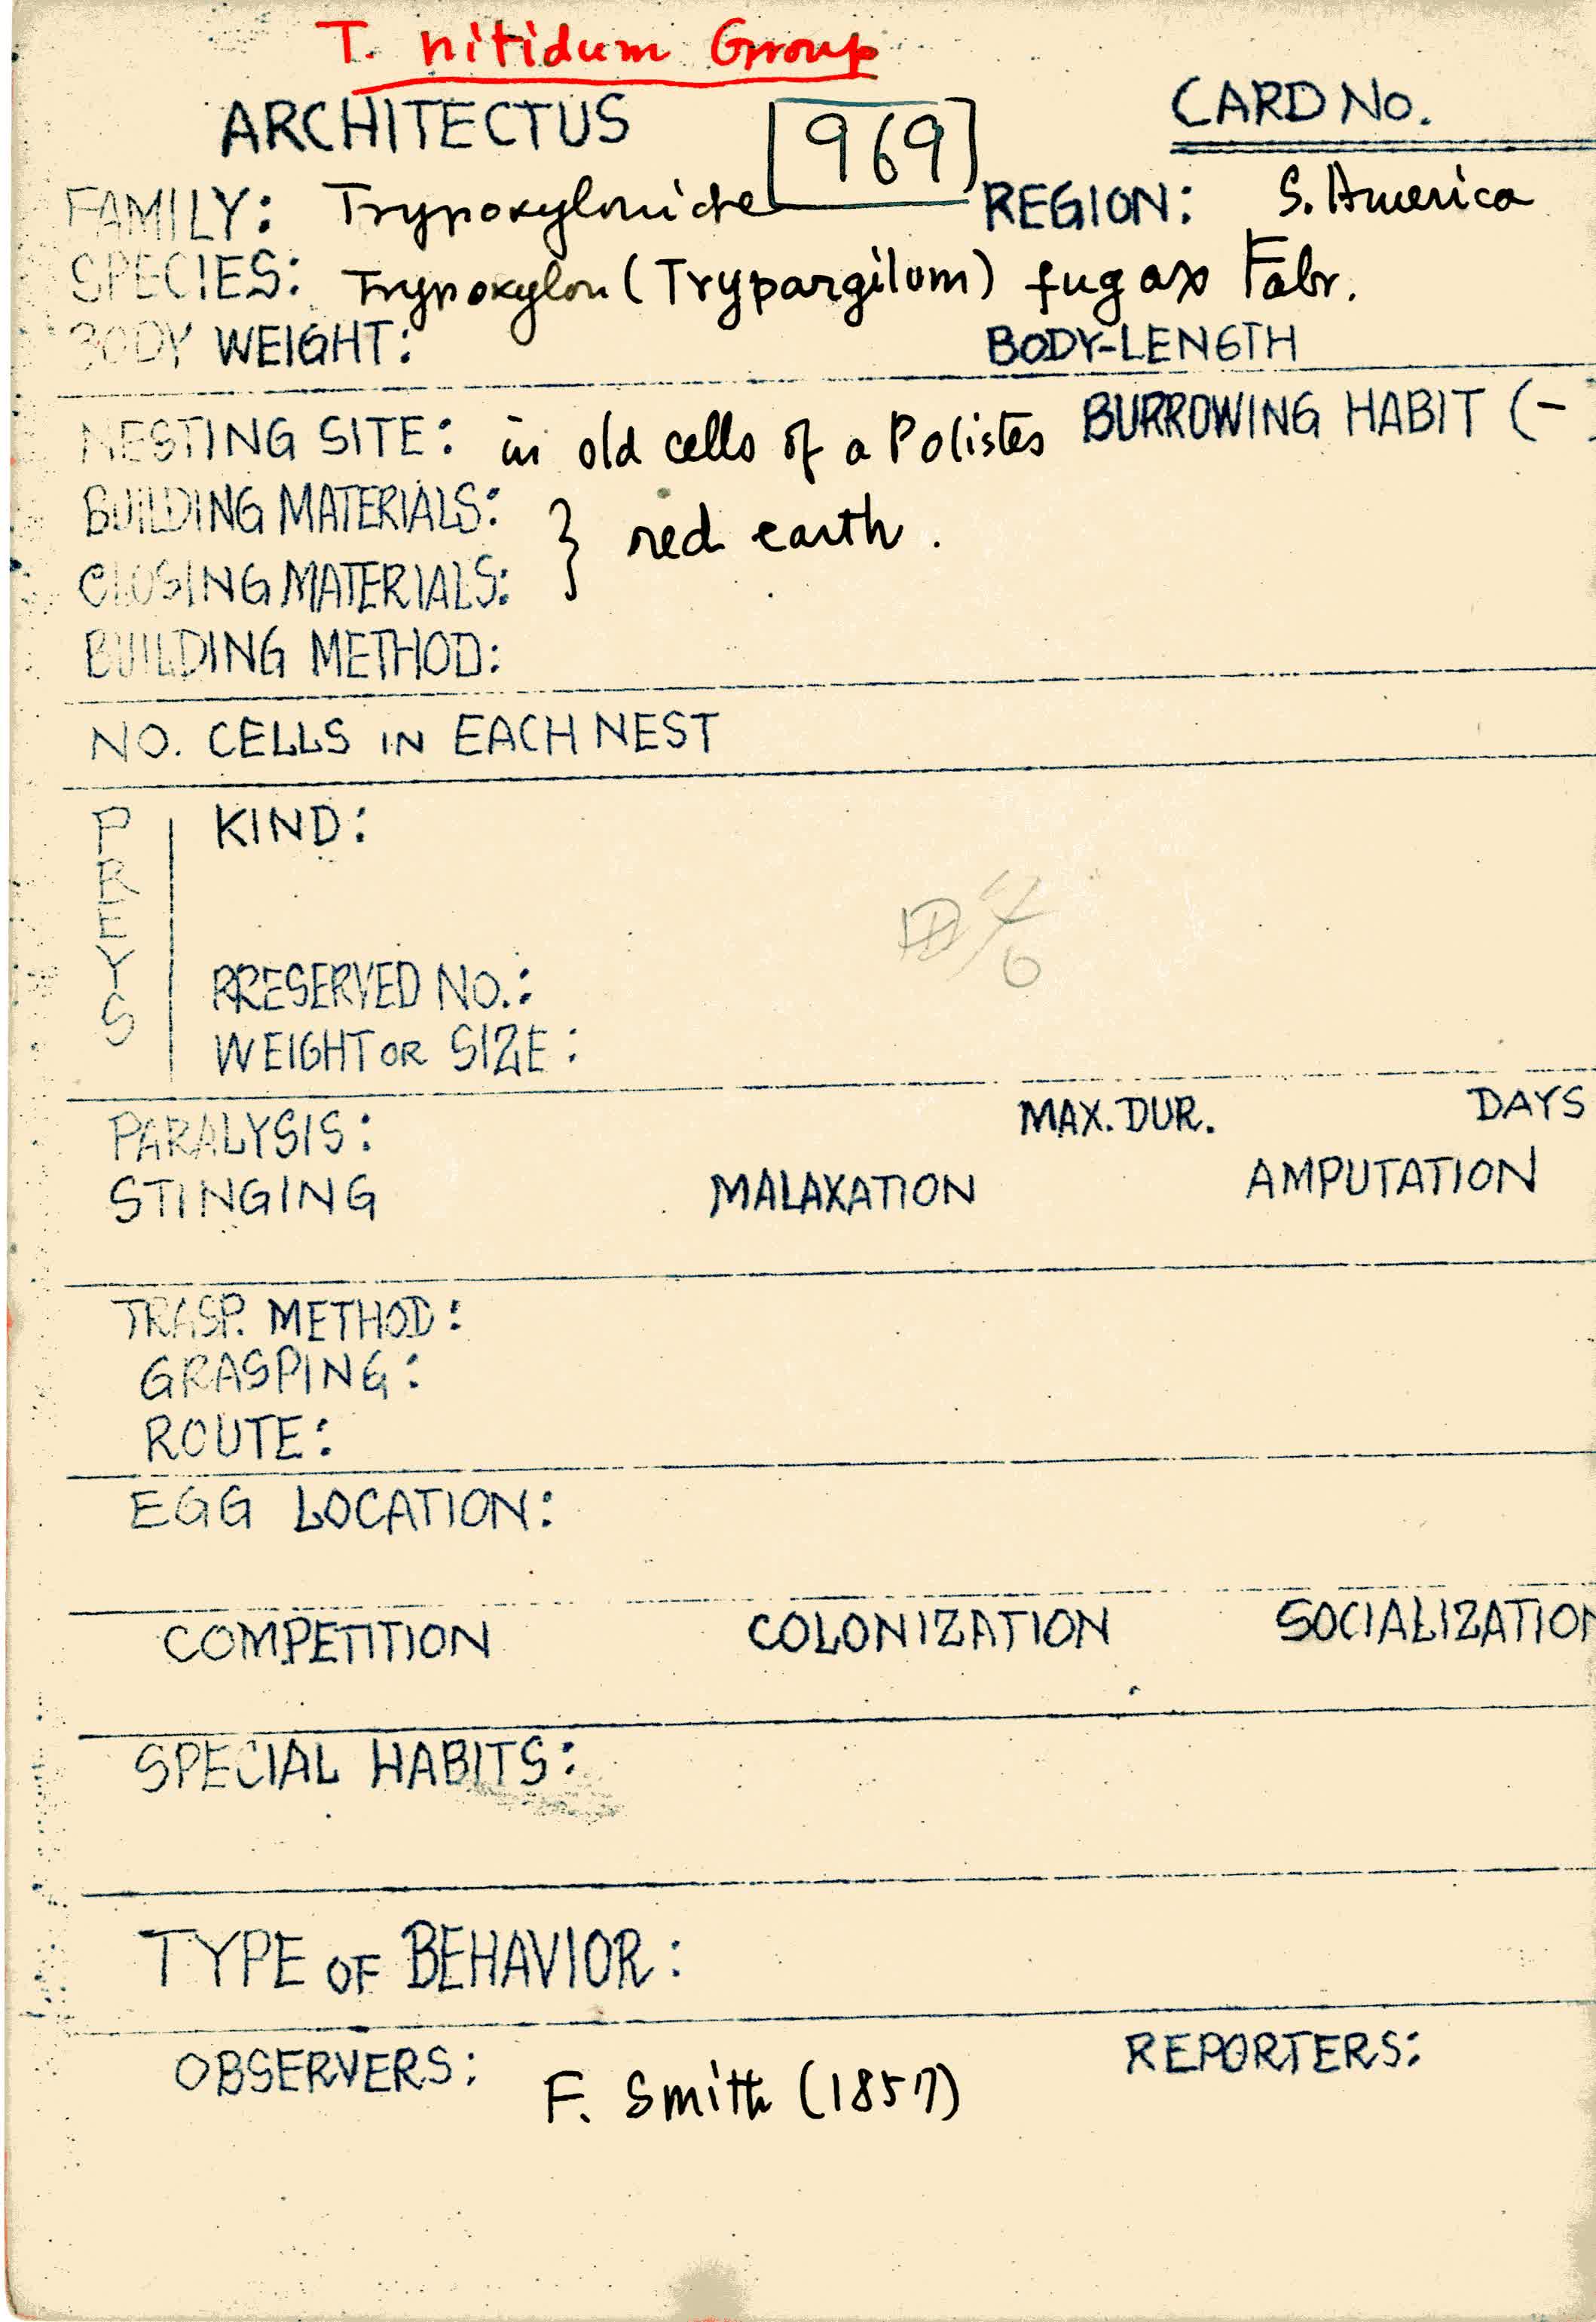 T. nitidum Group
ARCHITECTUS [969] CARD No.
FAMILY: Trypoxylonidae REGION: S. America
SPECIES: Trypoxylon (Trypargilum) fugax Fabr.
BODY WEIGHT: BODY-LENGTH
NESTING SITE: in old cells of a Polistes BURROWING HABIT (-)
BUILDING MATERIALS:
} red earth.
CLOSING MATERIALS:
BUILDING METHOD:
NO. CELLS IN EACH NEST
PREYS KIND:
PRESERVED NO.:
WEIGHT OR SIZE:
PARALYSIS: MAX. DUR. DAYS
STINGING MALAXATION AMPUTATION
TRASP. METHOD:
GRASPING:
ROUTE:
EGG LOCATION:
COMPETITION COLONIZATION SOCIALIZATION
SPECIAL HABITS:
TYPE OF BEHAVIOR:
OBSERVERS: F. Smith (1857) REPORTERS: